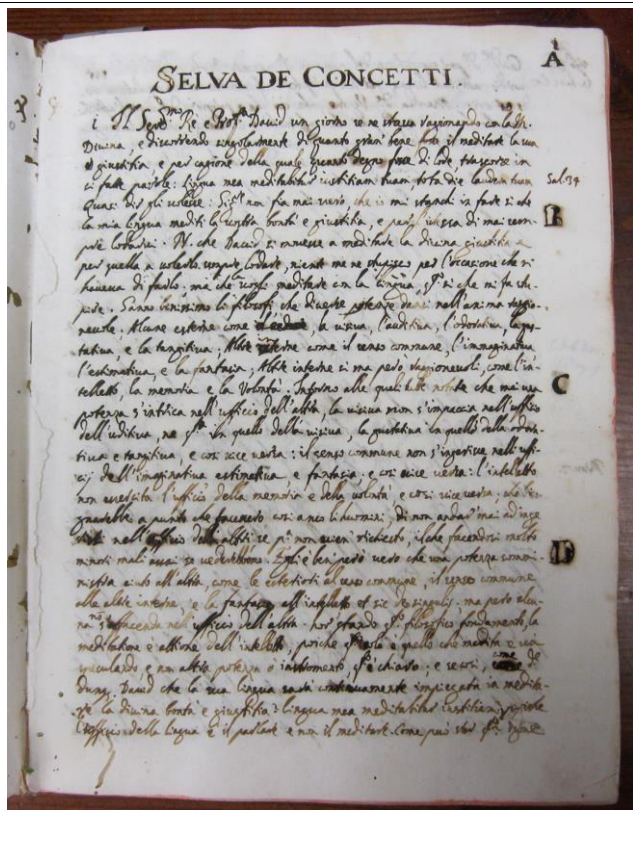 A
SELVA DE CONCETTI.
i Il Ser.mo Re e Prof.ta David un giorno se ne stava ragionando con la M.
Divina, e discorrendo singolarmente di quanto gran bene fosse il meditare la sua
giustitia, e per cagione della quale quanto degno fosse di lode, trascorse in
si fatte parole: Lingua mea meditabitur iustitiam tuam, tota die laudem tuam
Sal: 34
Quasi dir gli volesse: Sig.r non fia mai vero, che io mi stanchi in fare si che
la mia lingua mediti la vostra bontà e giustitia, e
B
di mai sem-
pre lodarvi. Ma che David si movesse a meditare la divina giustitia e
per quella a volerlo sempre lodare, niente me ne stupisco per l'occasione che n'
haveva di farlo. ma che vogli meditare con la lingua, q.o si che mi fa stu-
pire. Sanno benissimo li filosofi che diverse potenze danno nell'anima ragio-
nevole. Alcune esterne come la visiva, l'auditiva, l'odorativa, la gus-
tativa, e la tangitiva; Altre interne come il senso commune, l'immaginativa
l'estimativa, e la fantasia; Altre interne si ma però ragionevoli, come l'in-
telletto, la memoria e la Volontà. Intorno alle quali tutte notate che mai una
C
potenza s'intrica nell'ufficio dell'altra, la visiva non s'impaccia nell'ufficio
dell'uditiva, ne q.sta in quello della visiva, la gustativa in quello della odora-
tiva e tangitiva, e così vice versa: il senso commune non s'ingerisce nell'uffi-
cij dell'imaginativa estimativa, e fantasia, e così vice versa: l'intelletto
non esercita l'ufficio della memoria e della volontà, e così vice versa.
a punto che facessero così anco li huomini, di non andar mai ad inge
rirsi nell'officio dell'altri se p.a non vien richiesto, il che facendosi molto
minori mali assai se vederebbono. Egli è ben però vero che una potenza sommi-
D
nistra aiuto all'altra, come le esteriori al senso commune, il senso commune
alle altre interne, e la fantasia all'intelletto et sic de singulis. ma però alcu-
na nell'ufficio dell'altra. hor stando q.o filosofico fondamento, la
meditatione è attione dell'intelletto, poiche è quello che medita e va
speculando e non altra potenza o instromento, q.o è chiaro; e se così, come de
dunq. David che la sua lingua sarà continuamente impiegata in medita-
re la divina bontà e giustitia: lingua mea meditabitur iustitiam,
l'officio della lingua è il parlare e non il meditare. Come può star